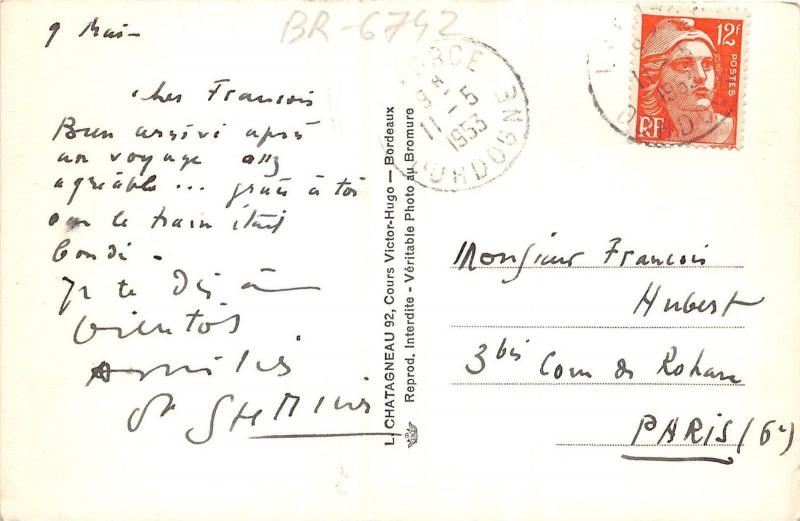 9 Mai-
BR-6742
cher Francois
Bien arrivé après
un voyage assez
agréable... grâce à toi
car le train était
bondé.
Je te dis à
bientôt
Amitiés
L. CHATAGNEAU 92, Cours Victor-Hugo — Bordeaux
Reprod. Interdite - Véritable Photo au Bromure
FORCE
9 H
11 -5
1953
DORDOGNE
12F
POSTES
RF
Monsieur Francois
Hubert
3bis Cour de Rohan
PARIS (6e)